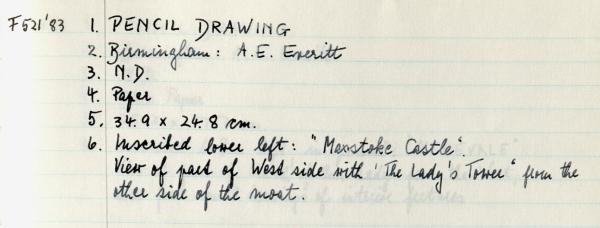 F521'83 1. PENCIL DRAWING
2. Birmingham: A.E. Everitt
3. N.D.
4. Paper
5. 34.9 x 24.8 cm.
6. Inscribed lower left: "Maxstoke Castle".
View of part of West side with 'The Lady's Tower" from the
other side of the moat.